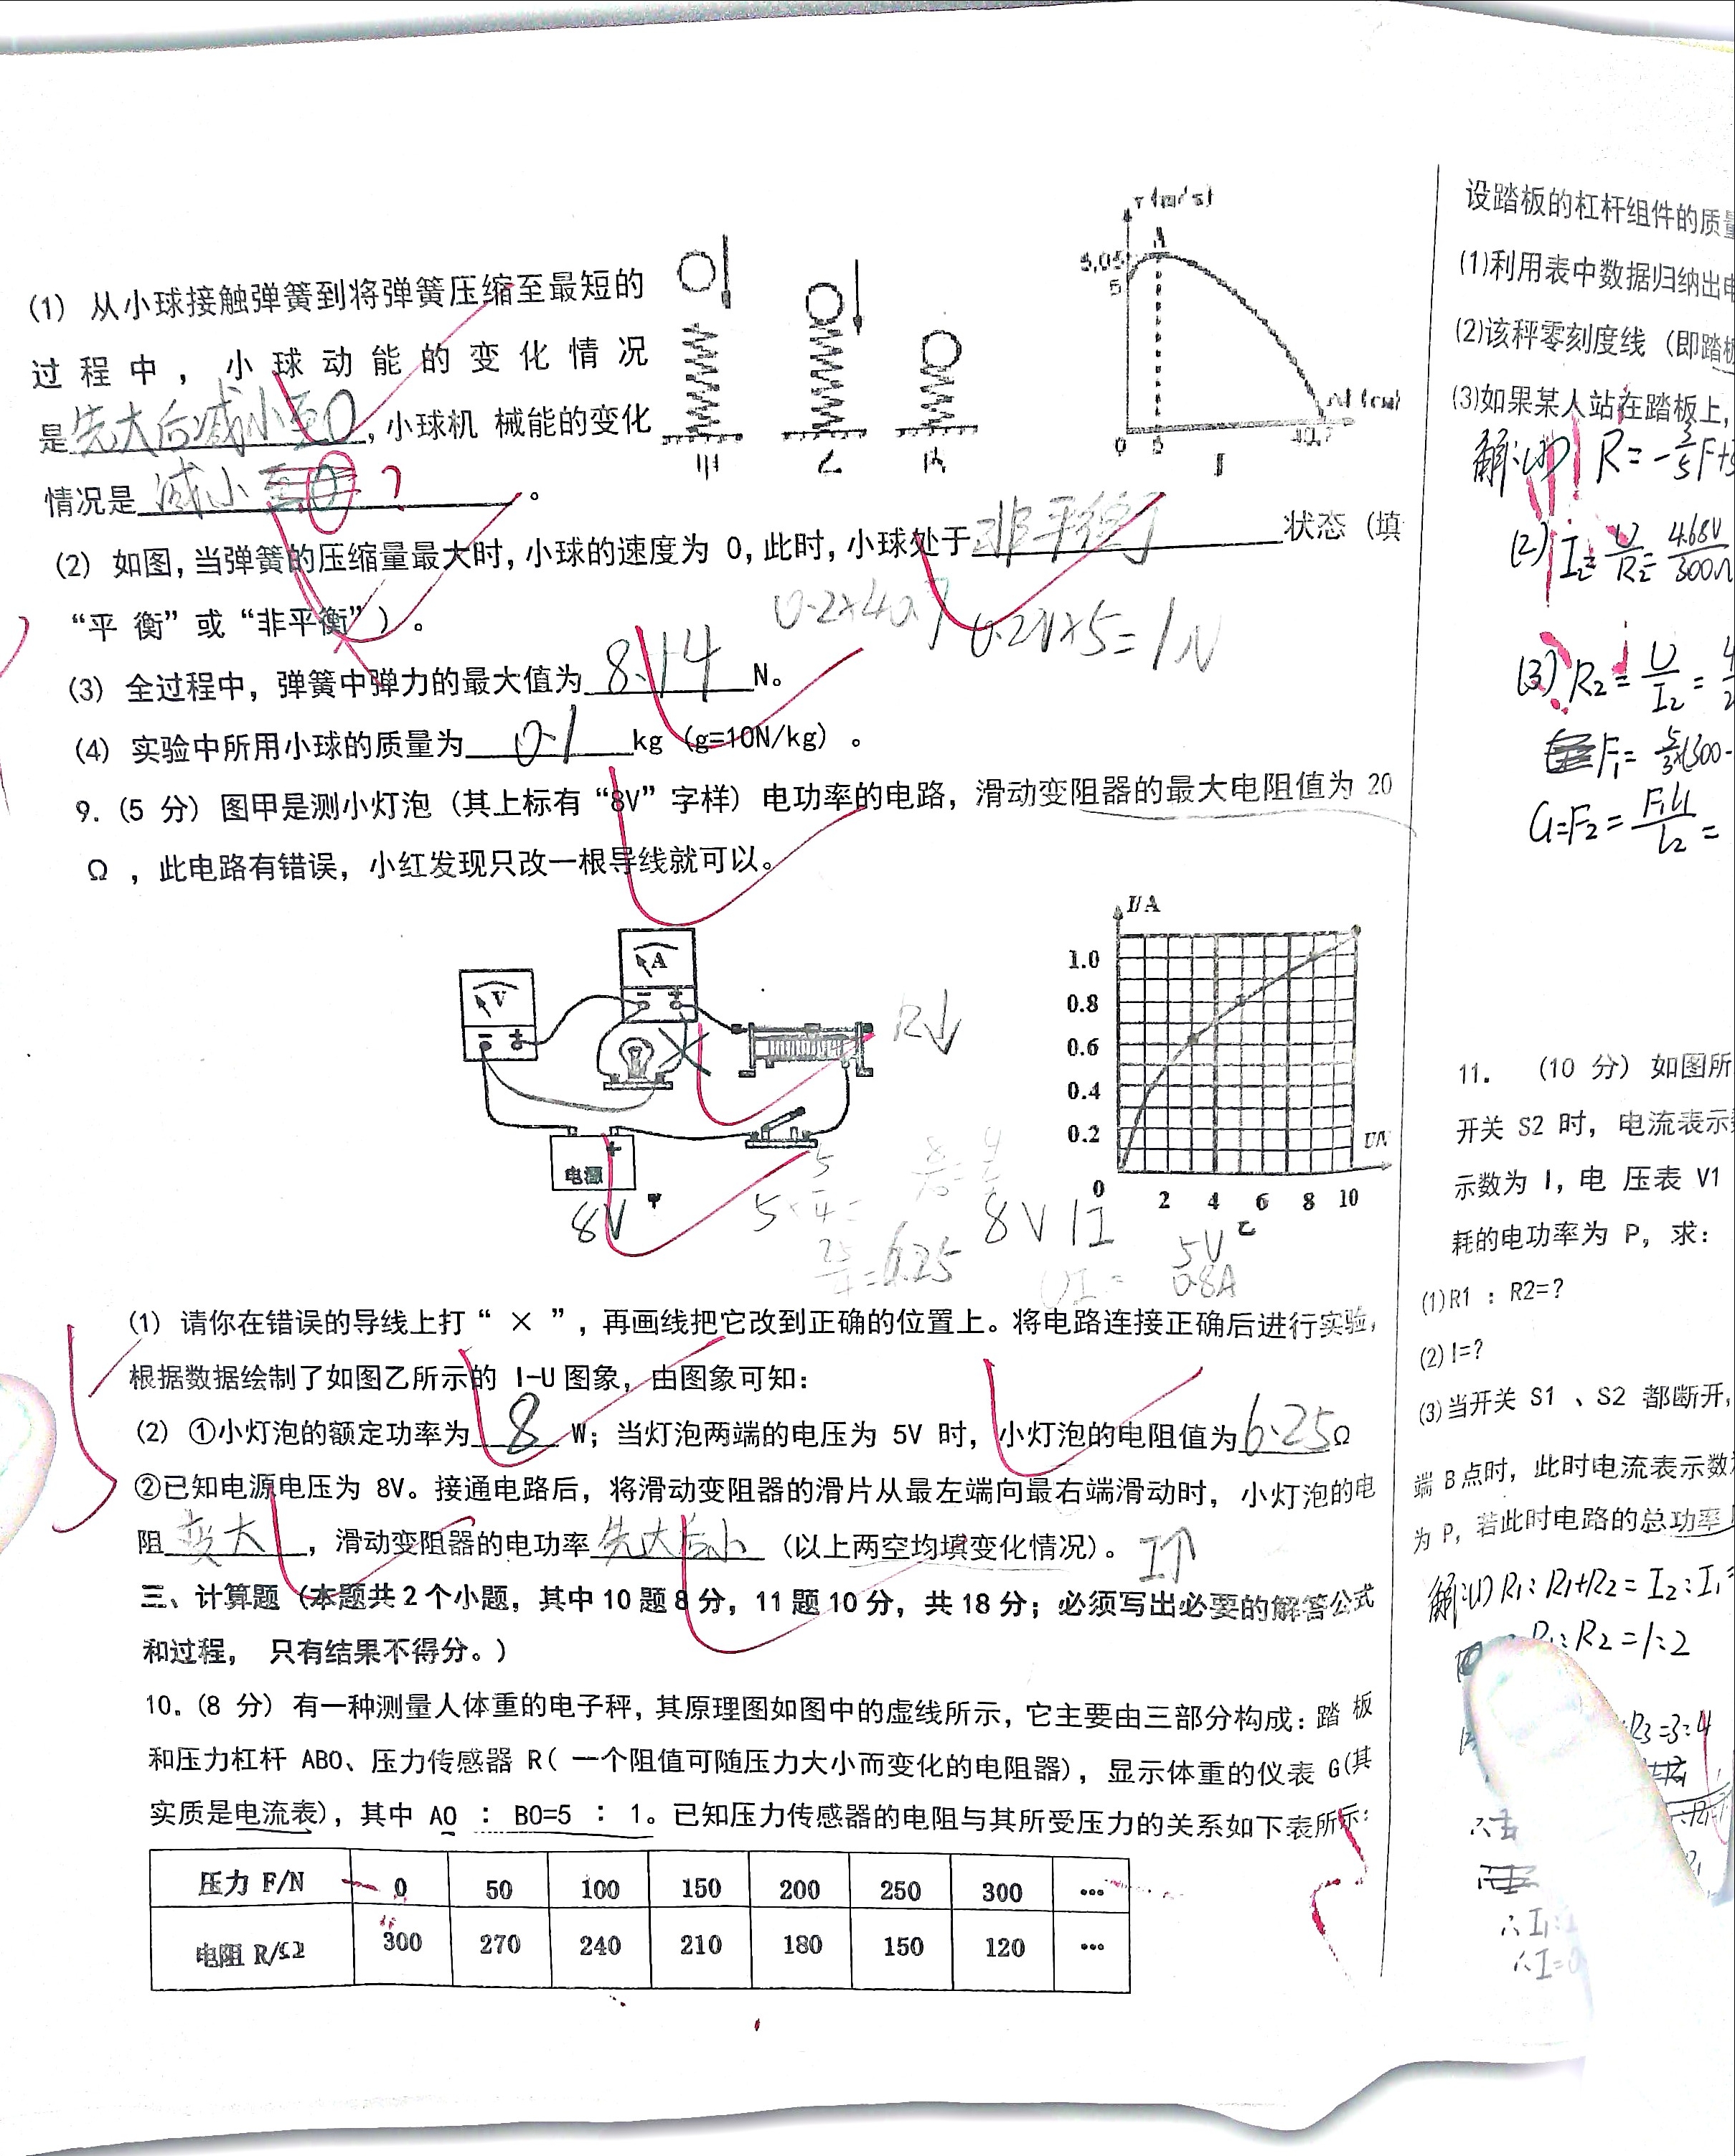 (1) 从小球接触弹簧到将弹簧压缩至最短的
过程中，小球动能的变化情况
是先大后减小至0，小球机 械能的变化
情况是减小 ?。
v(m/s)
A
5
0
5
甲 乙 丙 丁
(2) 如图，当弹簧的压缩量最大时，小球的速度为 0，此时，小球处于非平衡状态（填
“平 衡”或“非平衡”）。
0.2×40.7 0.2N×5=1N
(3) 全过程中，弹簧中弹力的最大值为8.14N。
(4) 实验中所用小球的质量为0.1kg (g=10N/kg) 。
9. (5 分) 图甲是测小灯泡（其上标有“8V”字样）电功率的电路，滑动变阻器的最大电阻值为 20
Ω ，此电路有错误，小红发现只改一根导线就可以。
V
- +
A
- +
R↓
电源
+
甲
8V
I/A
1.0
0.8
0.6
0.4
0.2
0 2 4 6 8 10
U/V
乙
=6.25
8V 1I
5V
UI= 0.8A
(1) 请你在错误的导线上打“ × ”，再画线把它改到正确的位置上。将电路连接正确后进行实验，
根据数据绘制了如图乙所示的 I-U 图象，由图象可知：
(2) ①小灯泡的额定功率为8W；当灯泡两端的电压为 5V 时，小灯泡的电阻值为6.25Ω
②已知电源电压为 8V。接通电路后，将滑动变阻器的滑片从最左端向最右端滑动时，小灯泡的电
阻变大，滑动变阻器的电功率先大后小（以上两空均填变化情况）。I↑
三、计算题（本题共2个小题，其中10题8分，11题10分，共18分；必须写出必要的解答公式
和过程，只有结果不得分。）
10。(8 分) 有一种测量人体重的电子秤，其原理图如图中的虚线所示，它主要由三部分构成：踏 板
和压力杠杆 ABO、压力传感器 R( 一个阻值可随压力大小而变化的电阻器)，显示体重的仪表 G(其
实质是电流表)，其中 AO ： BO=5 ： 1。已知压力传感器的电阻与其所受压力的关系如下表所示：
压力 F/N 0 50 100 150 200 250 300 …
电阻 R/Ω 300 270 240 210 180 150 120 …
设踏板的杠杆组件的质量
(1)利用表中数据归纳出电
(2)该秤零刻度线（即踏板
(3)如果某人站在踏板上，
解:(1) R=-3/5F+
(2) I₂=U/R₂=4.68V/300Ω
(3) R₂=U/I₂=
F₁=5/3×(300-
G=F₂=F₁L₁/L₂=
11. (10 分) 如图所
开关 S2 时，电流表示数
示数为 I，电 压表 V1
耗的电功率为 P，求：
(1)R1 ：R2=?
(2)I=?
(3)当开关 S1 、S2 都断开，
端 B 点时，此时电流表示数
为 P，若此时电路的总功率
解:(1) R₁:R₁+R₂=I₂:I₁
R₁:R₂=1:2
R₃=3:4
∴I₁:
∴I=0